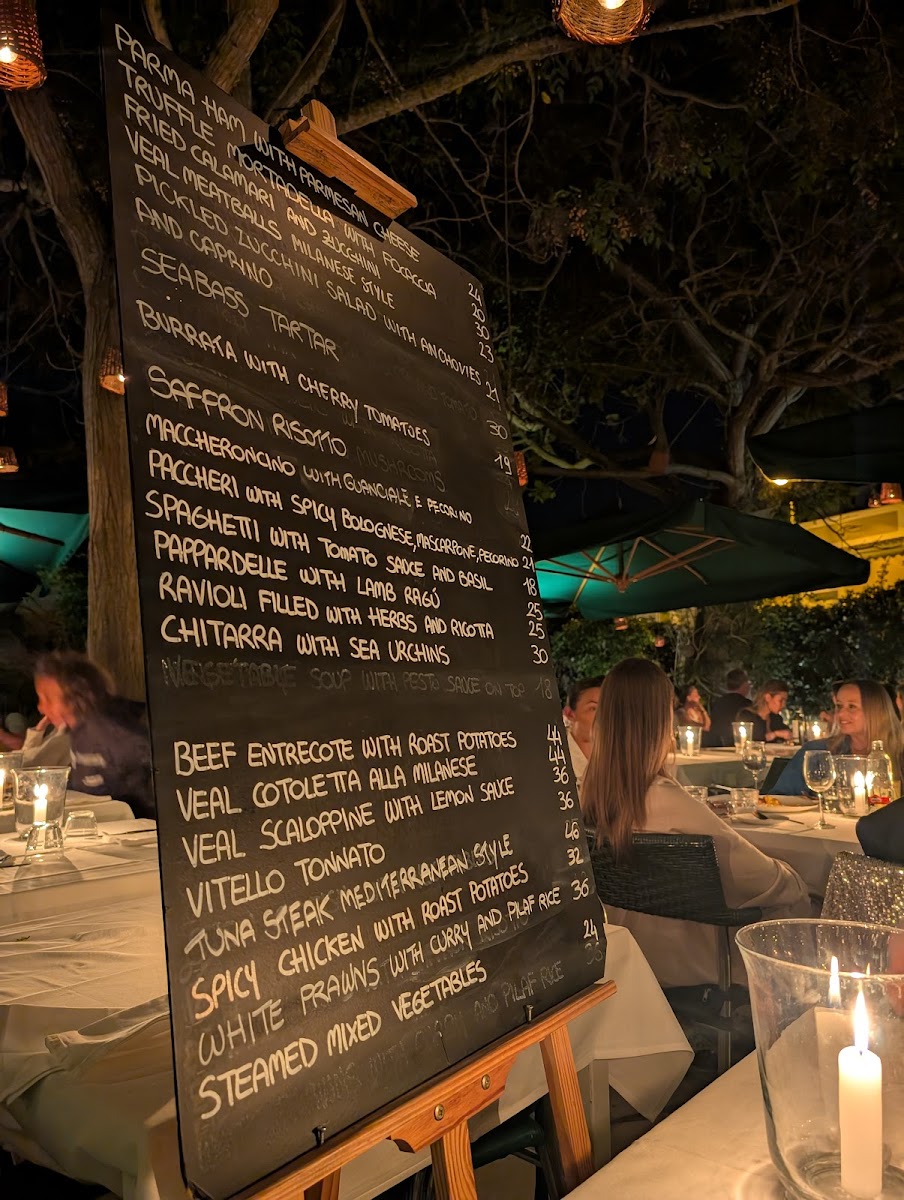 PARMA HAM WITH PARMESAN CHEESE 24
TRUFFLE MORTADELLA WITH FOCACCIA 26
FRIED CALAMARI AND ZUCCHINI 30
VEAL MEATBALLS MILANESE STYLE 23
PICKLED ZUCCHINI SALAD WITH ANCHOVIES
AND CAPRINO 21
SEABASS TARTAR 30
BURRATA WITH CHERRY TOMATOES 19
SAFFRON RISOTTO MUSHROOMS
MACCHERONCINO WITH GUANCIALE E PECORINO 22
PACCHERI WITH SPICY BOLOGNESE, MASCARPONE, PECORINO 21
SPAGHETTI WITH TOMATO SAUCE AND BASIL 18
PAPPARDELLE WITH LAMB RAGÚ 25
RAVIOLI FILLED WITH HERBS AND RICOTTA 25
CHITARRA WITH SEA URCHINS 30
VEGETABLE SOUP WITH PESTO SAUCE ON TOP 18
BEEF ENTRECOTE WITH ROAST POTATOES 44
VEAL COTOLETTA ALLA MILANESE 44
VEAL SCALOPPINE WITH LEMON SAUCE 36
VITELLO TONNATO 36
TUNA STEAK MEDITERRANEAN STYLE 46
SPICY CHICKEN WITH ROAST POTATOES 32
WHITE PRAWNS WITH CURRY AND PILAF RICE 36
STEAMED MIXED VEGETABLES 24
AND PILAF RICE